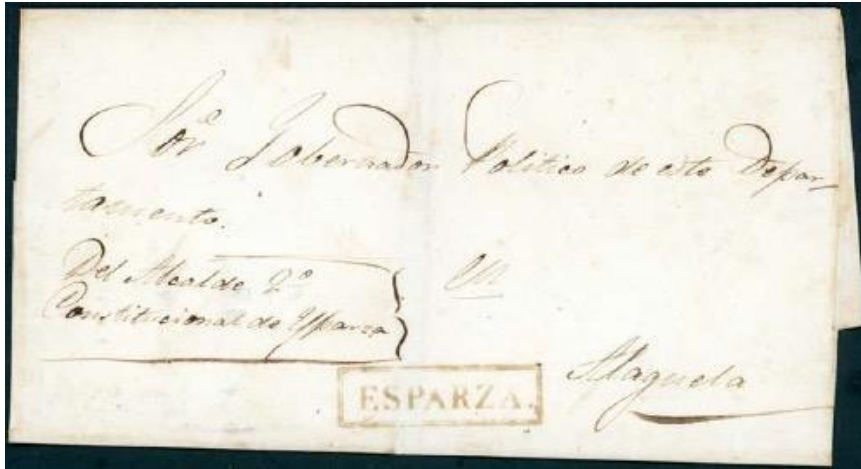 Sor. Gobernador Politico de este Depar-
tamento.
Del Alcalde 2º
Constitucional de Esparza
En
Alajuela
ESPARZA.